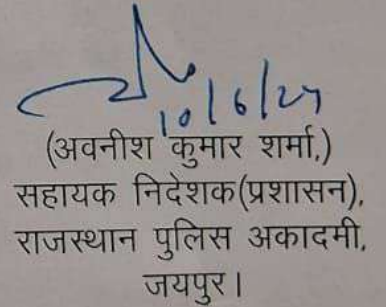 10/6/24
(अवनीश कुमार शर्मा,)
सहायक निदेशक(प्रशासन),
राजस्थान पुलिस अकादमी,
जयपुर।